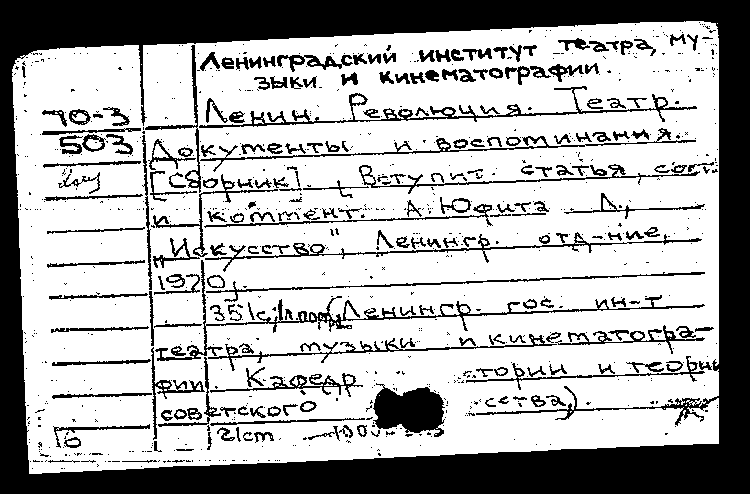 Ленинградский институт театра, му-
зыки и кинематографии.
70-3 Ленин. Революция. Театр.
503 Документы и воспоминания.
[Сборник]. [Вступит. статья, сост.
и коммент. А. Юфита Л.,
„Искусство", Ленингр. отд-ние,
1970].
351с; 1л.портр. (Ленингр. гос. ин-т
театра, музыки и кинематогра-
фии. Кафедр стории и теории
советского сства).
16